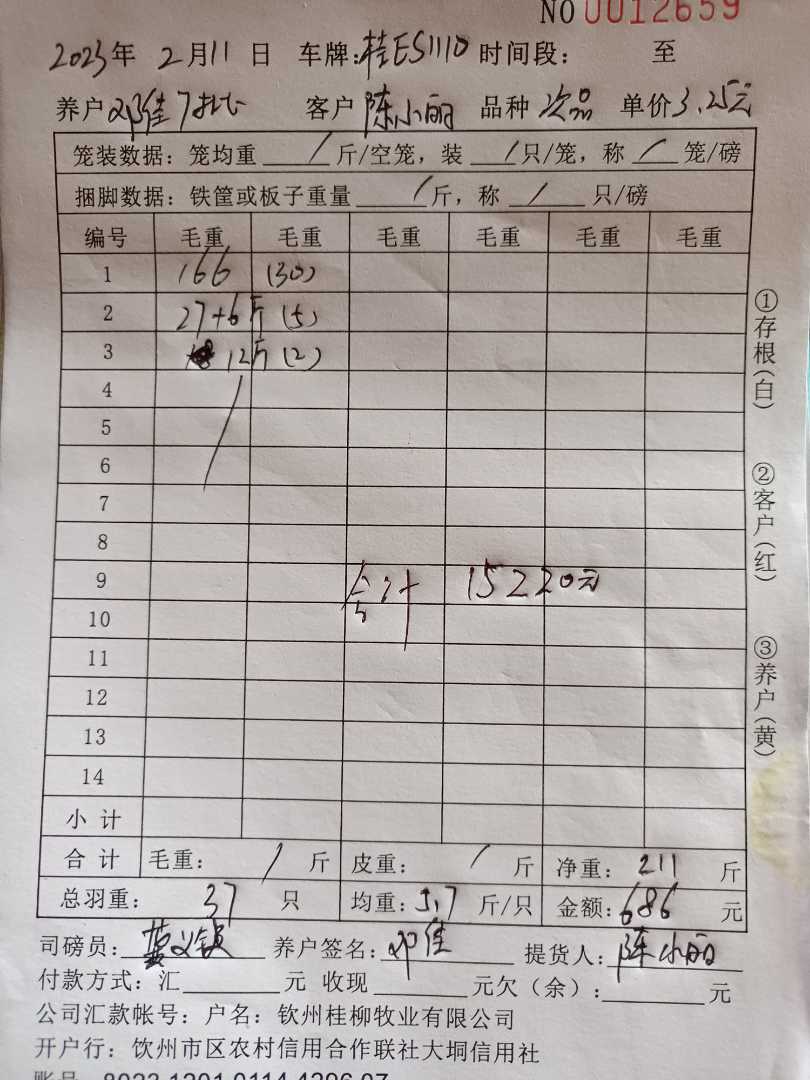 NO 0012659
2023年 2月11日 车牌:桂ES1110 时间段: 至
养户 邓佳 客户 陈小丽 品种 次品 单价3.25元
笼装数据：笼均重 / 斤/空笼，装 / 只/笼，称 / 笼/磅
捆脚数据：铁筐或板子重量 / 斤，称 / 只/磅
编号 毛重 毛重 毛重 毛重 毛重 毛重
1 166 (30)
2 27+6斤 (5)
3 12斤 (2)
4
5
6
7
8
9 合计 15220元
10
11
12
13
14
小计
合计 毛重： / 斤 皮重： / 斤 净重：211 斤
总羽重： 37 只 均重：5.7 斤/只 金额：686 元
司磅员： 养户签名：邓佳 提货人：陈小丽
付款方式：汇 元 收现 元欠（余）： 元
公司汇款帐号：户名：钦州桂柳牧业有限公司
开户行：钦州市区农村信用合作联社大垌信用社
①存根(白)
②客户(红)
③养户(黄)